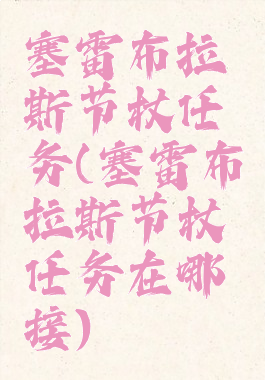 塞雷布拉
斯节杖任
务(塞雷布
拉斯节杖
任务在哪
接)